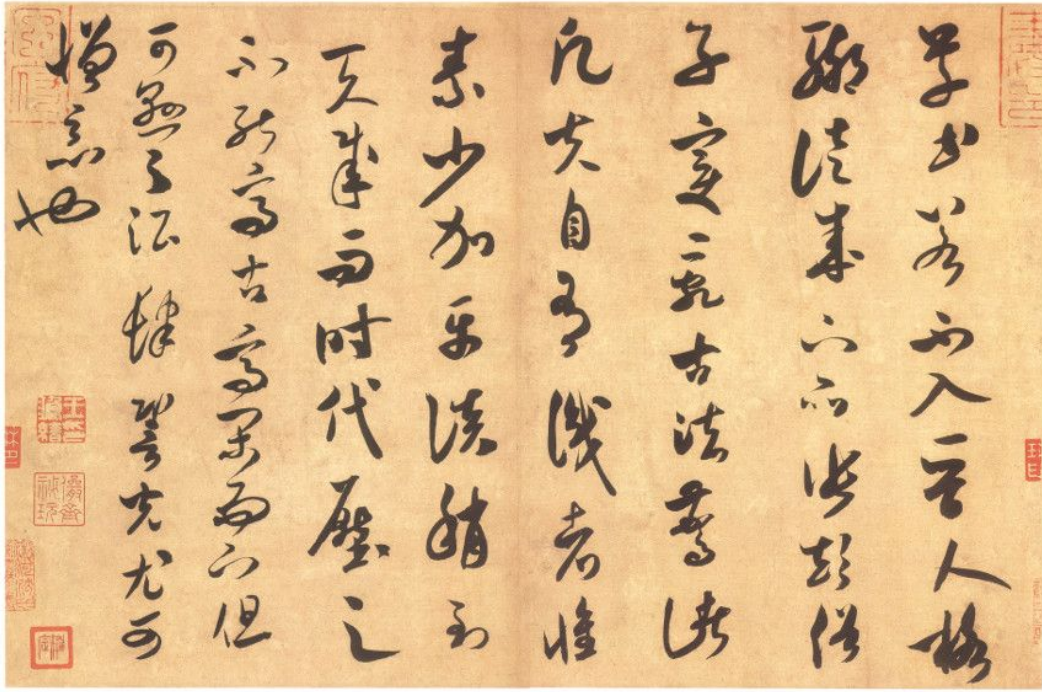 草書若不入晉人格
聊徒成下品張顛俗
子變亂古法驚諸
凡夫自有識者懷
素少加平淡稍到
天成而時代壓之
不能高古高閑而下但
可懸之酒肆䛒光尤可
憎惡也